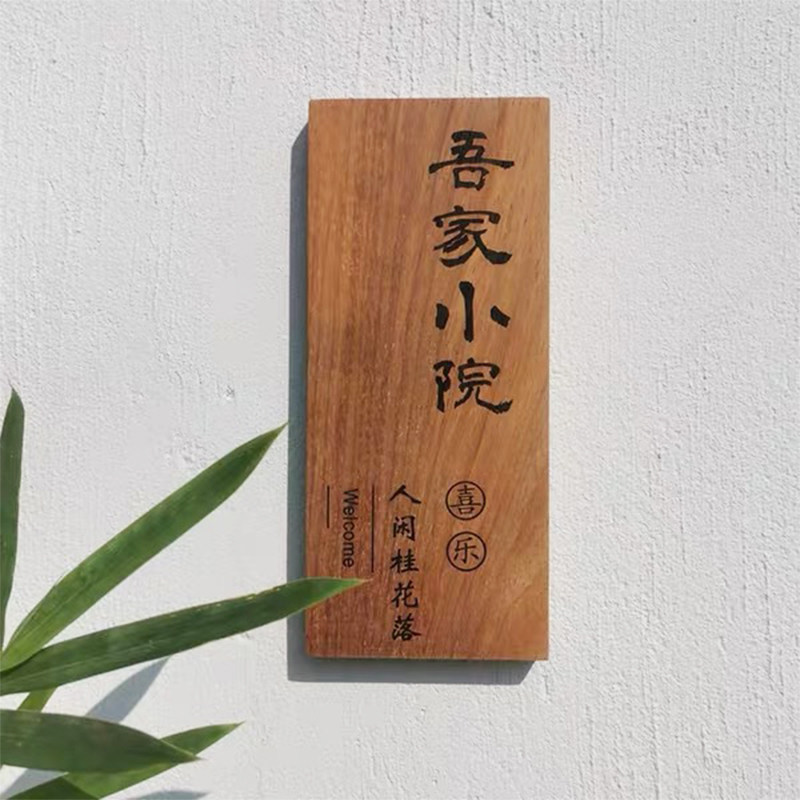 吾家小院
喜乐
人闲桂花落
Welcome